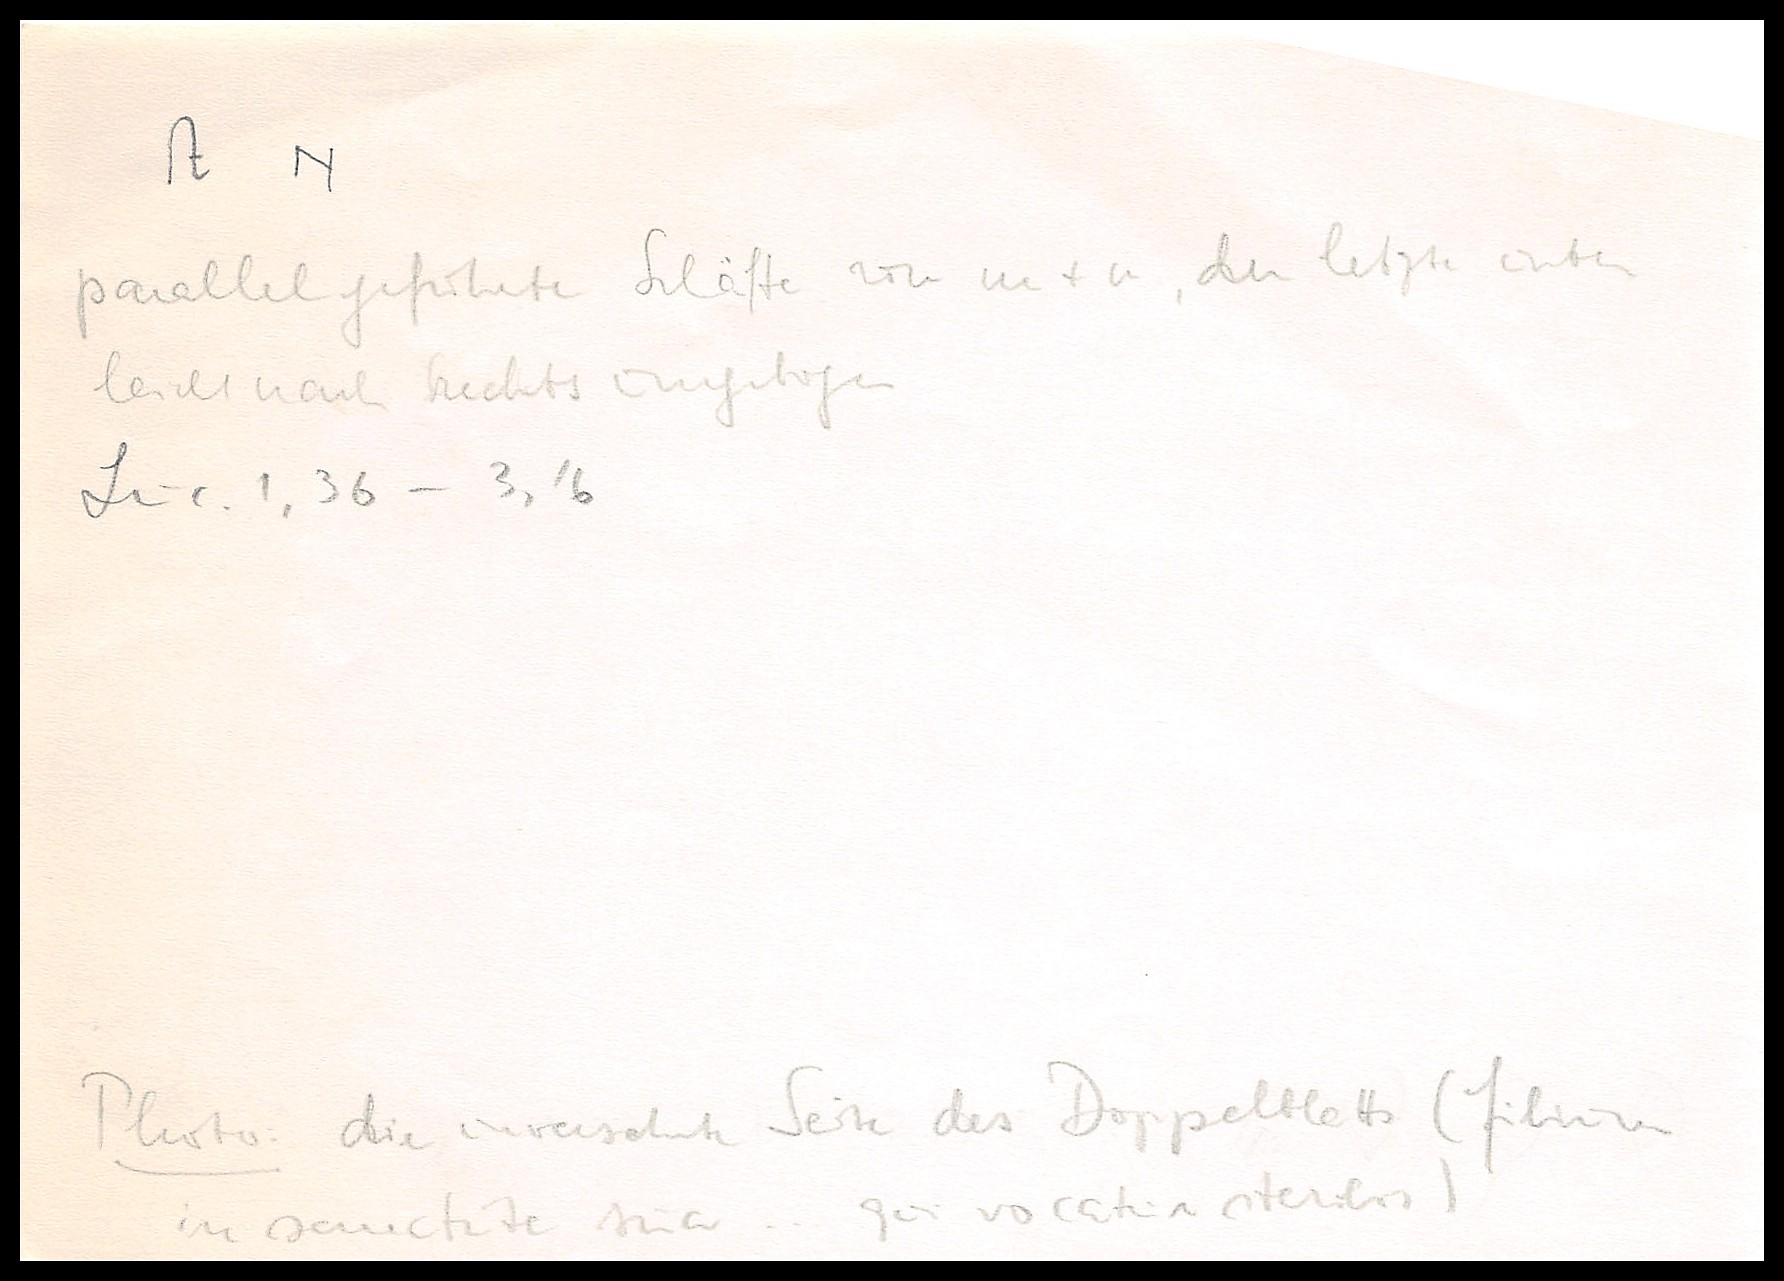 A N
parallel geführte Schäfte von m + n, der letzte unten
leicht nach rechts umgebogen
Luc. 1, 36 – 3, 16
Photo: die unversehrte Seite des Doppelblatts (filium
in senectute sua .. qui vocatur sterilis)